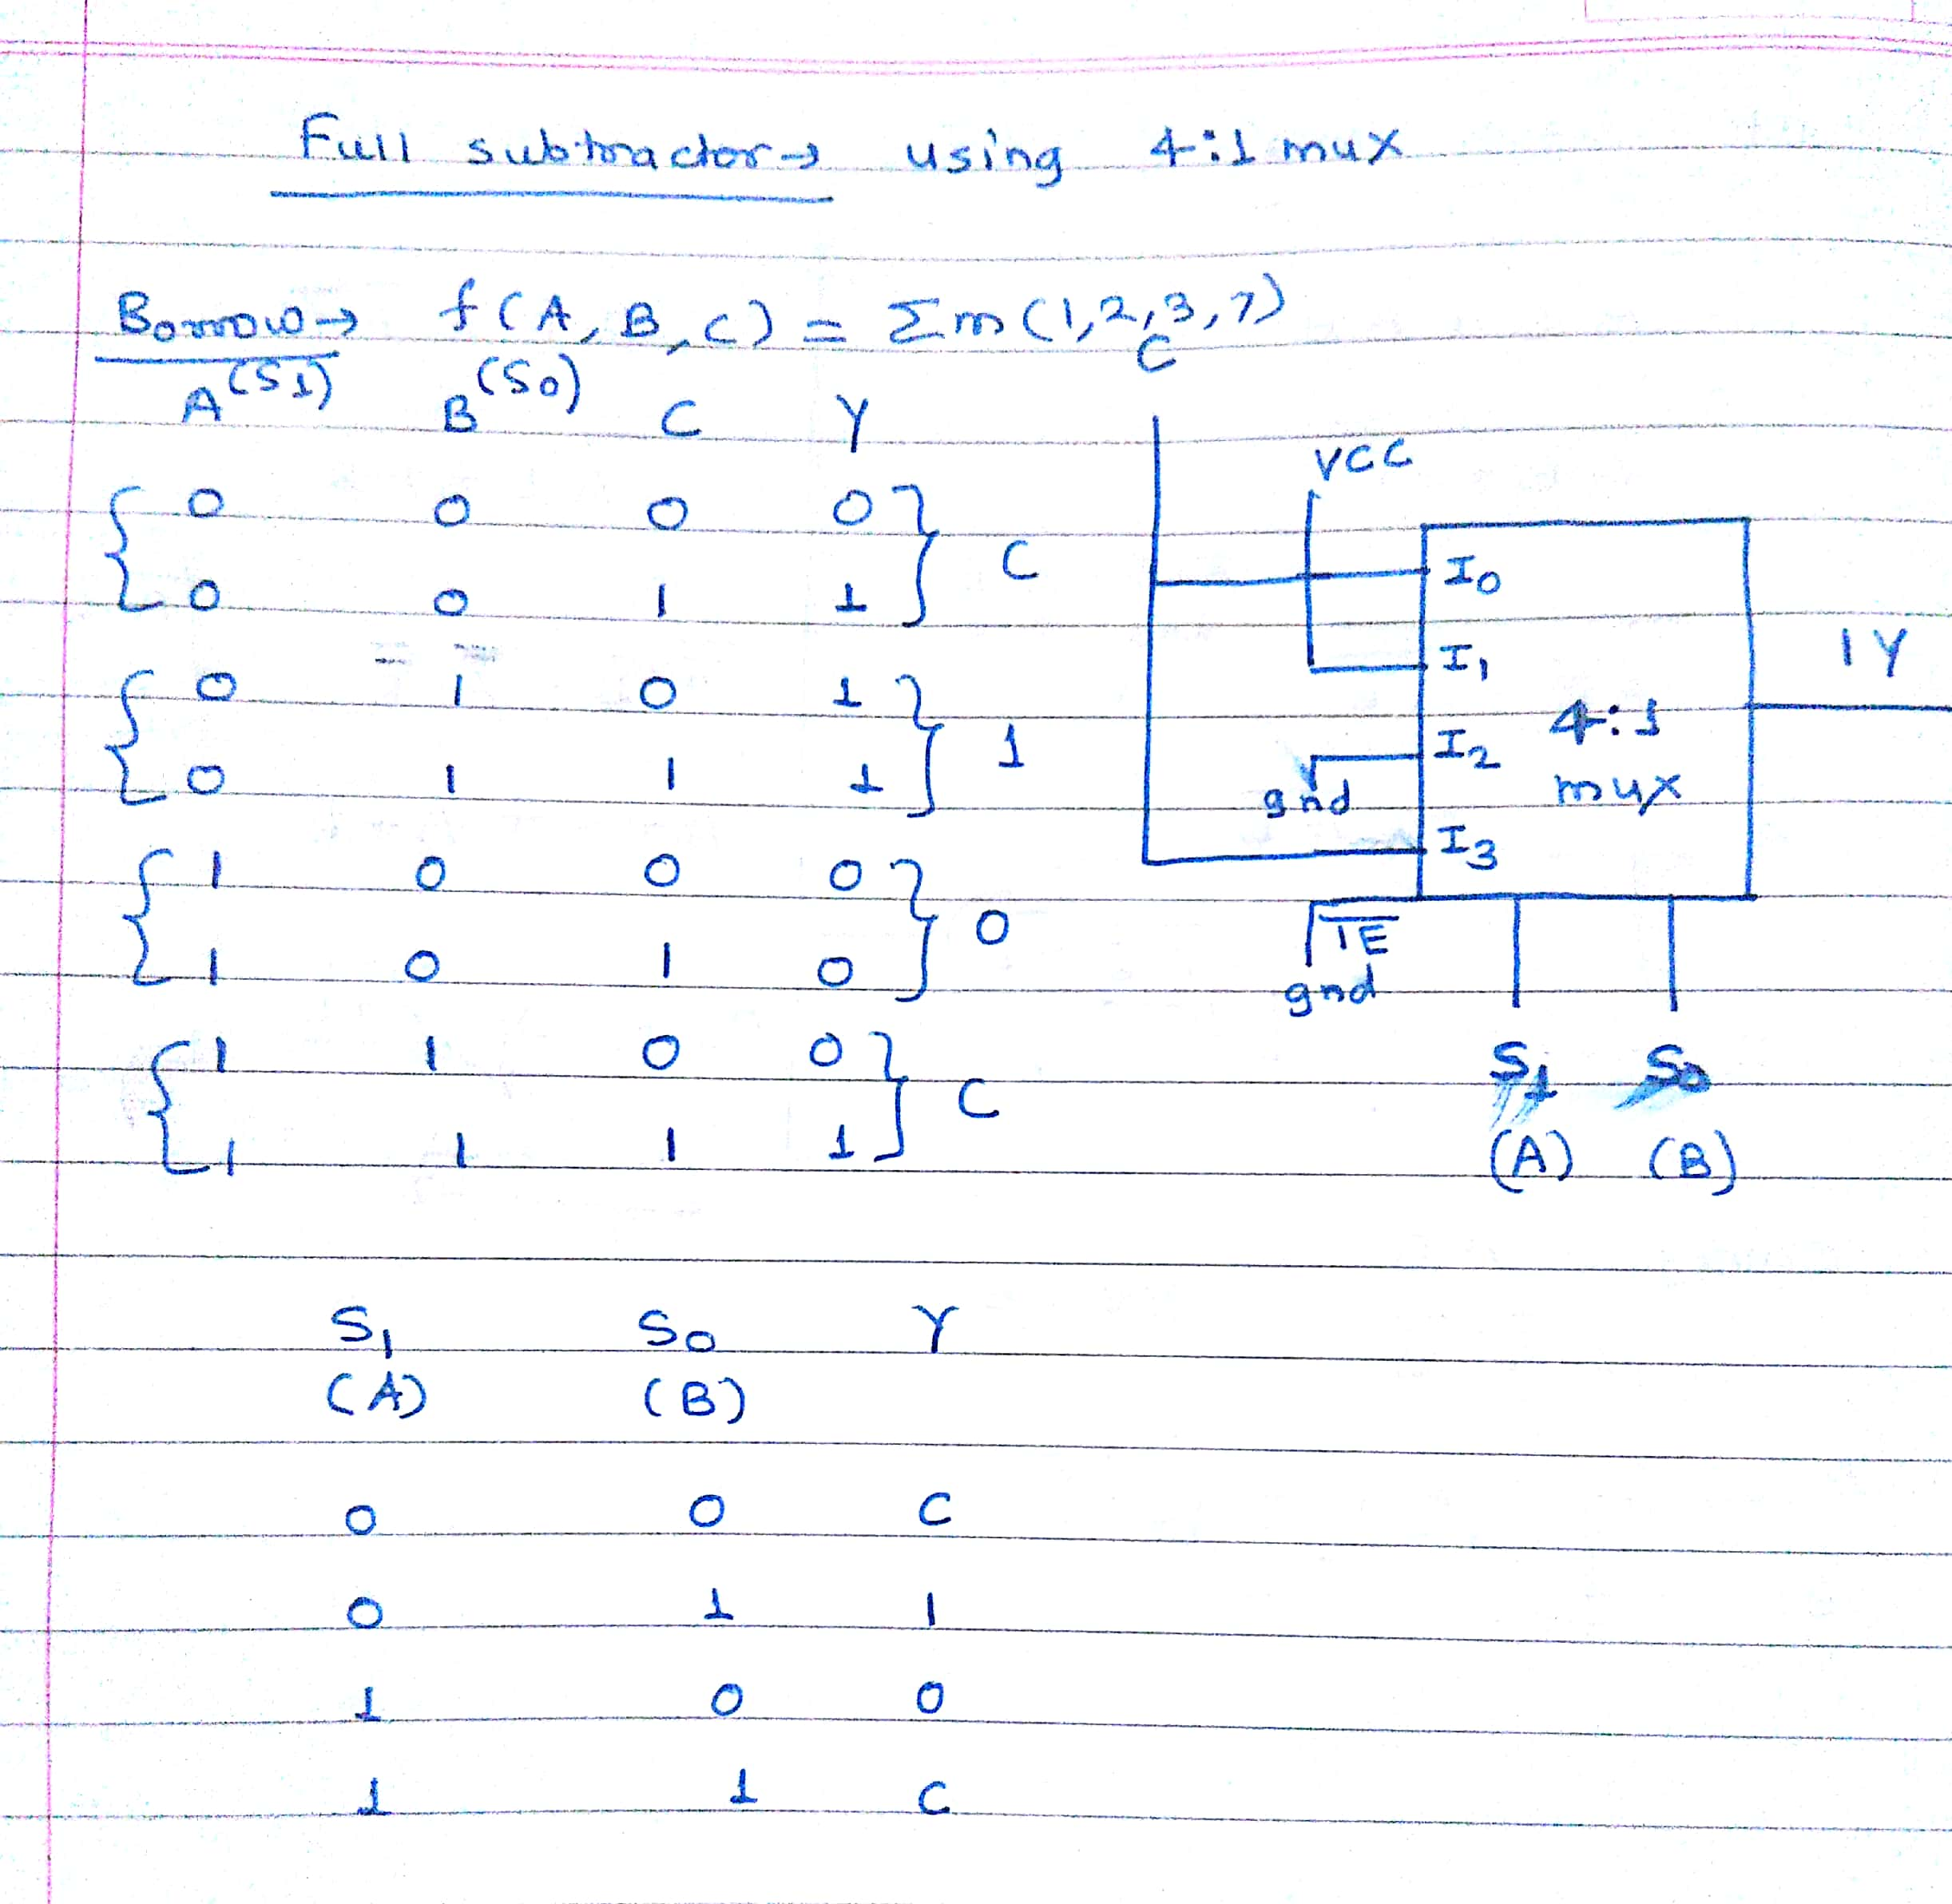 Full subtractor → using 4:1 mux
Borrow → f(A, B, C) = Σm(1,2,3,7)
A(S1) B(S0) C Y
0 0 0 0 } C
0 0 1 1
0 1 0 1 } 1
0 1 1 1
1 0 0 0 } 0
1 0 1 0
1 1 0 0 } C
1 1 1 1
C
VCC
I0
I1
1Y
4:1
I2
gnd
mux
I3
1E̅
gnd
S1 S0
(A) (B)
S1 S0 Y
(A) (B)
0 0 C
0 1 1
1 0 0
1 1 C